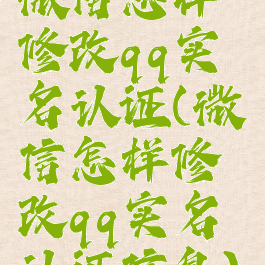 微信怎样
修改qq实
名认证(微
信怎样修
改qq实名
认证信息)